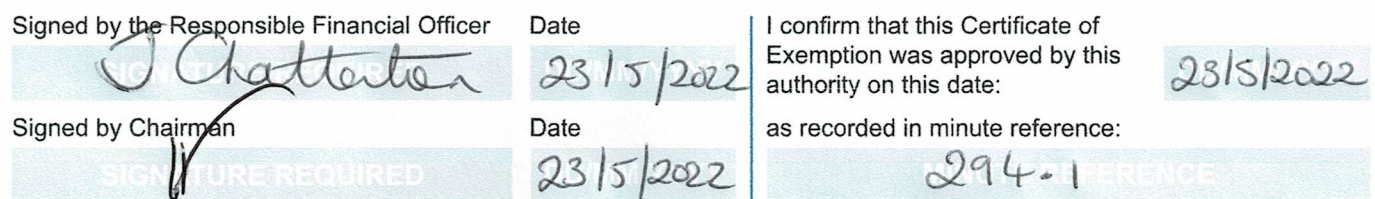 Signed by the Responsible Financial Officer
J Chatterton
Date
23/5/2022
Signed by Chairman
SIGNATURE REQUIRED
Date
23/5/2022
I confirm that this Certificate of
Exemption was approved by this
authority on this date:
23/5/2022
as recorded in minute reference:
294.1